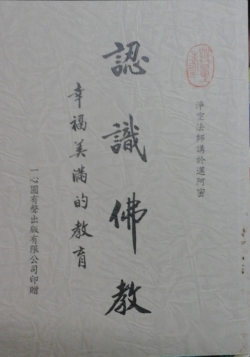 淨空法師講於邁阿密
認識佛教
幸福美滿的教育
一心圓有聲出版有限公司印贈